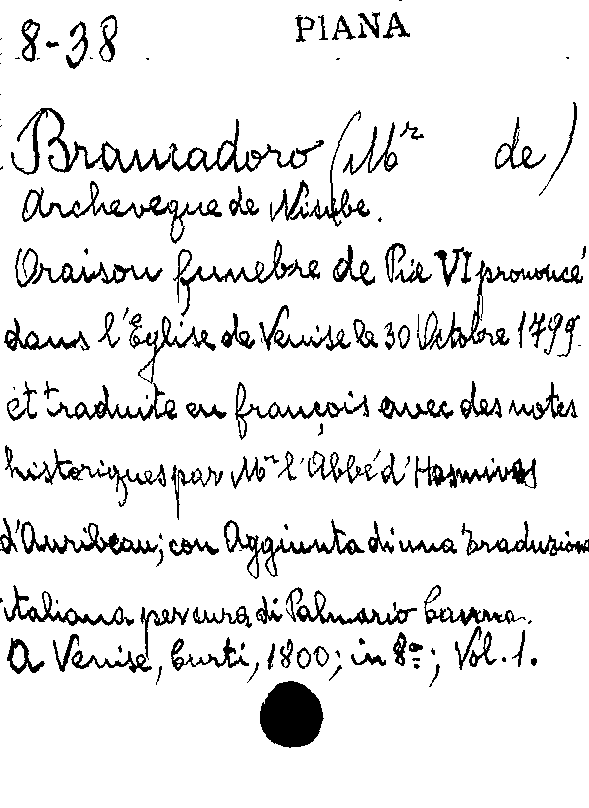 PIANA
8-38
Brancadoro (Mr de)
Archeveque de Nisibe.
Oraison funebre de Pie VI prononcé
dans l'Eglise de Venise le 30 Octobre 1799
et traduite en françois avec des notes
historiques par Mr l'Abbé d'Hesmivy
d'Auribeau; con Aggiunta di una traduzione
italiana per cura di Palmario
A Venise, Curti, 1800; in 8º; Vol. 1.